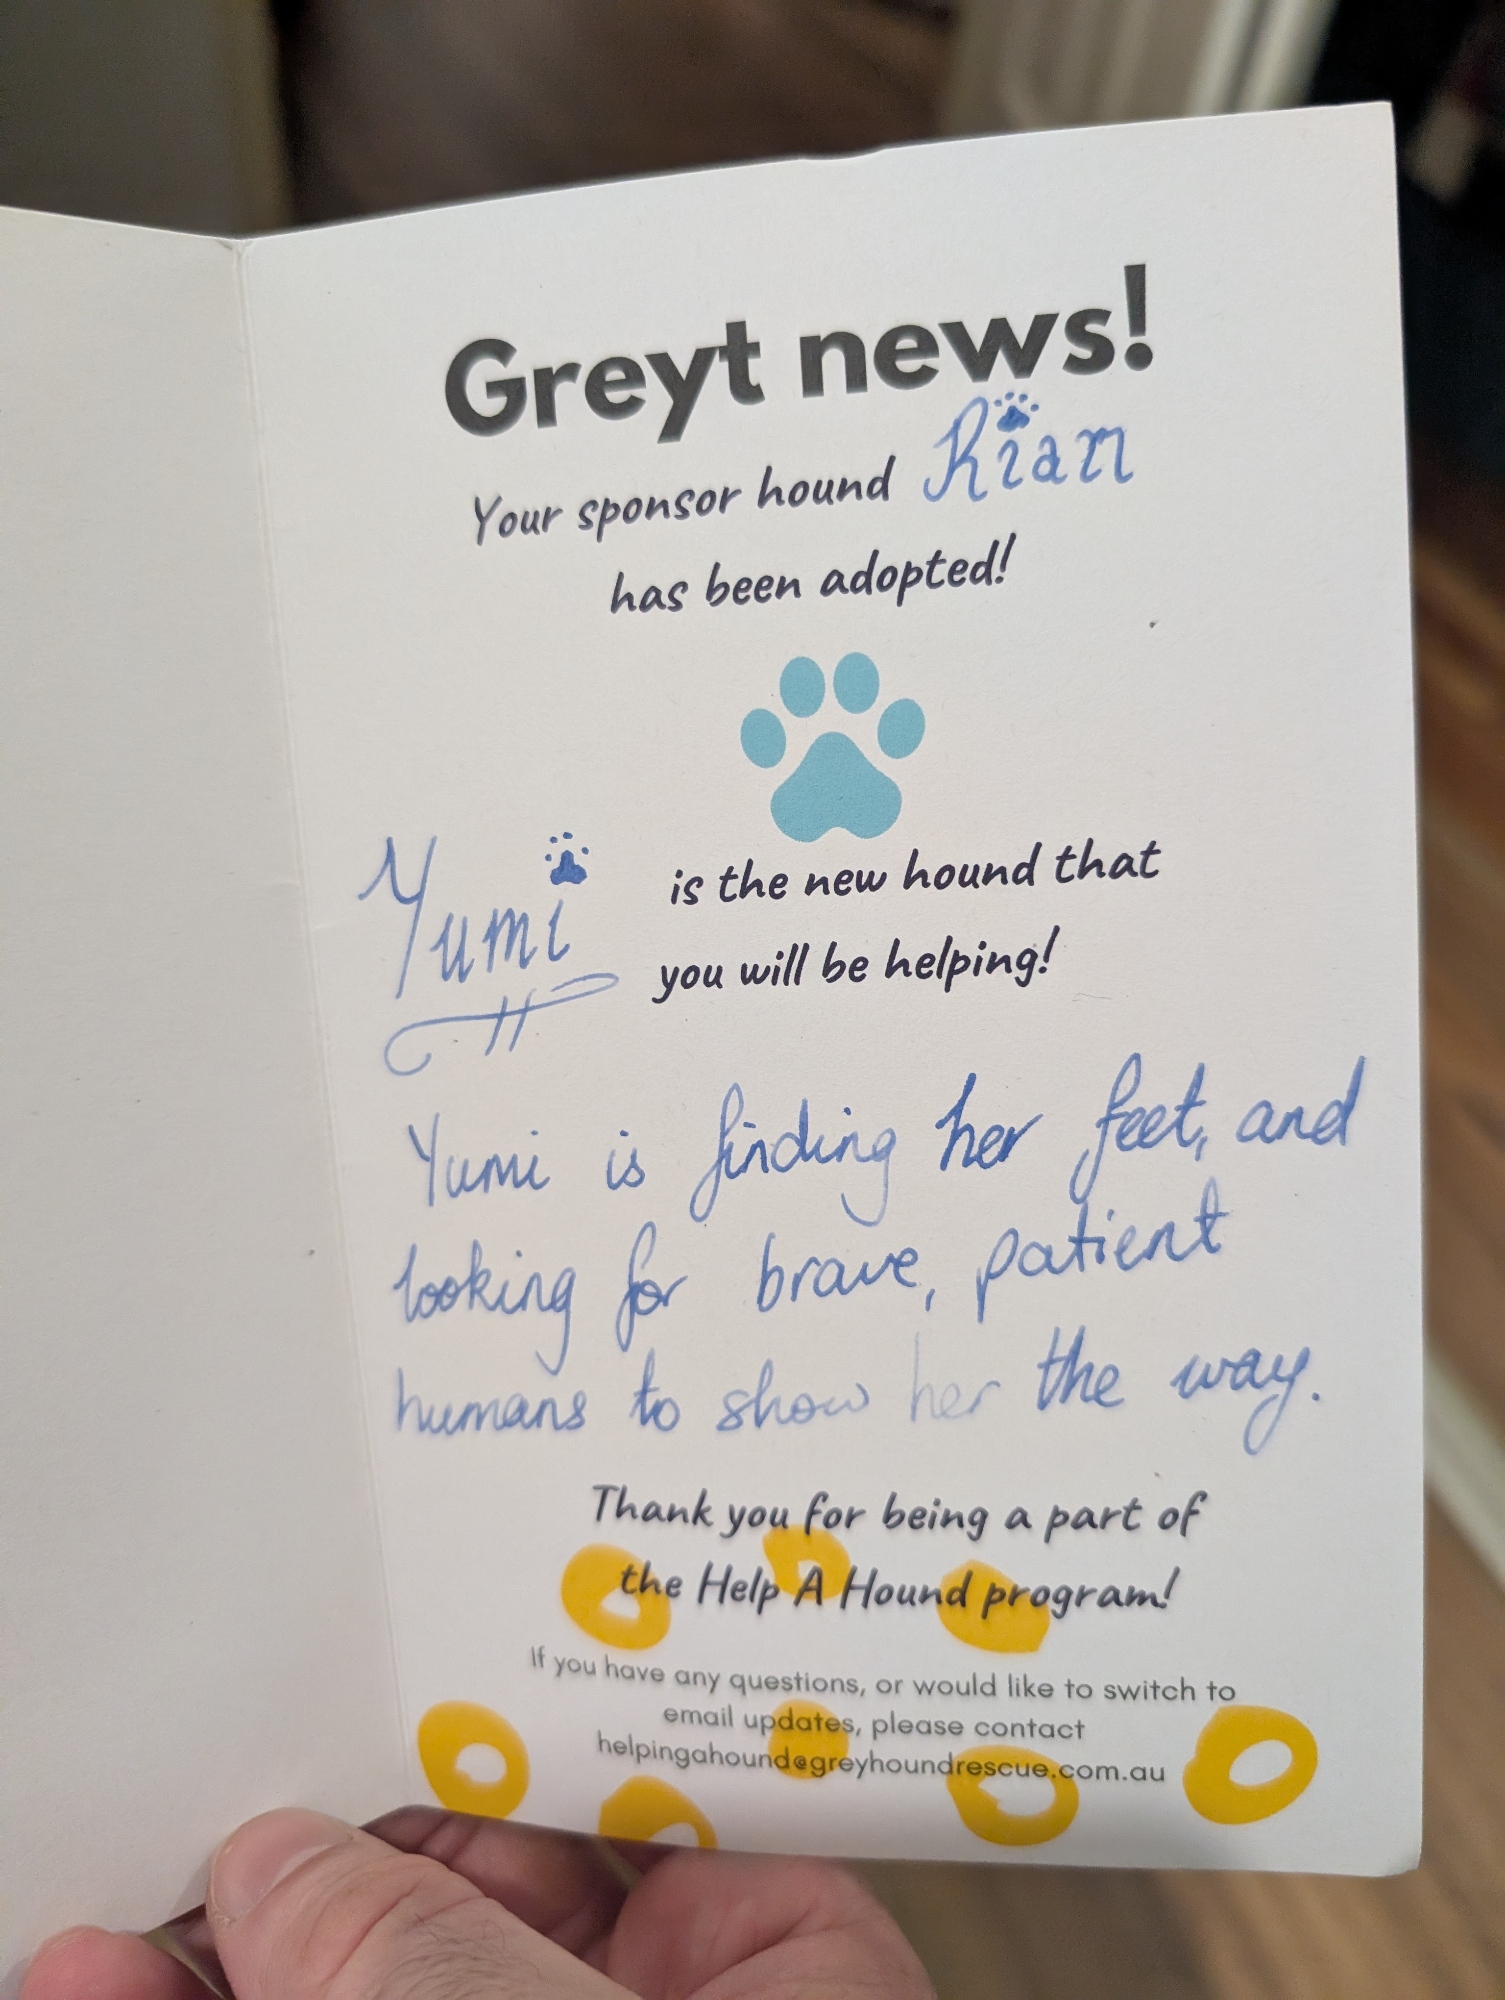 Greyt news!
Your sponsor hound Rian
has been adopted!
Yumi is the new hound that
you will be helping!
Yumi is finding her feet, and
looking for brave, patient
humans to show her the way.
Thank you for being a part of
the Help A Hound program!
If you have any questions, or would like to switch to
email updates, please contact
helpingahound@greyhoundrescue.com.au